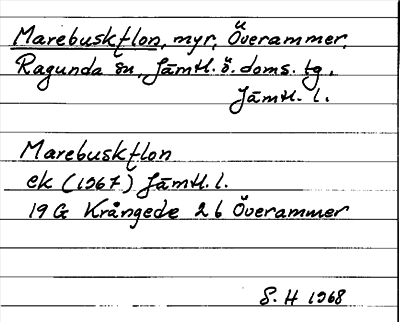 Marebuskflon, myr, Överammer,
Ragunda sn, Jämtl. ö. doms. tg,
Jämtl. l.
Marebuskflon
ek (1967) Jämtl. l.
19 G Krångede 2 b Överammer
S. H 1968